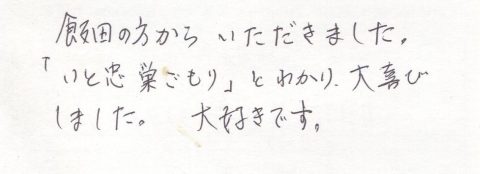 飯田の方から いただきました。
「いと忠 巣ごもり」と わかり、大喜び
しました。 大好きです。